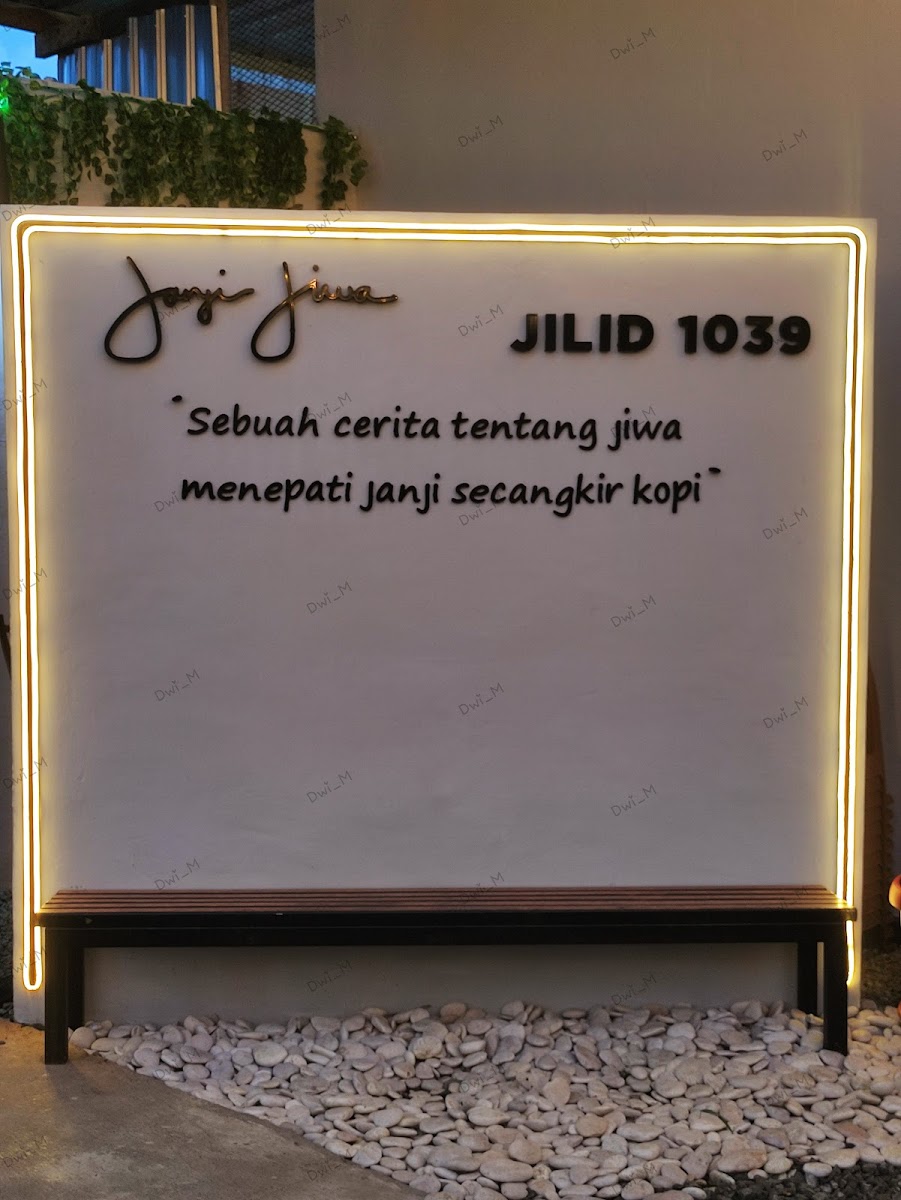 Janji Jiwa
JILID 1039
"Sebuah cerita tentang jiwa
menepati janji secangkir kopi"
Dwi_M